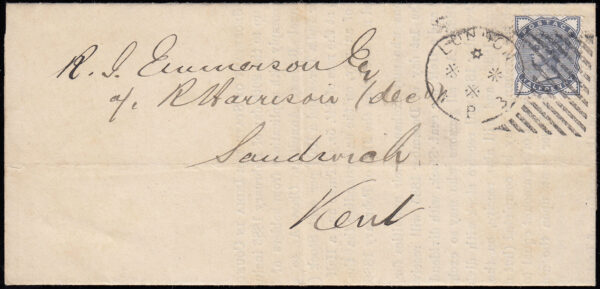 R. J. Emmerson Esq
a/c R Harrison (decd)
Sandwich
Kent
LONDON
P
POSTAGE